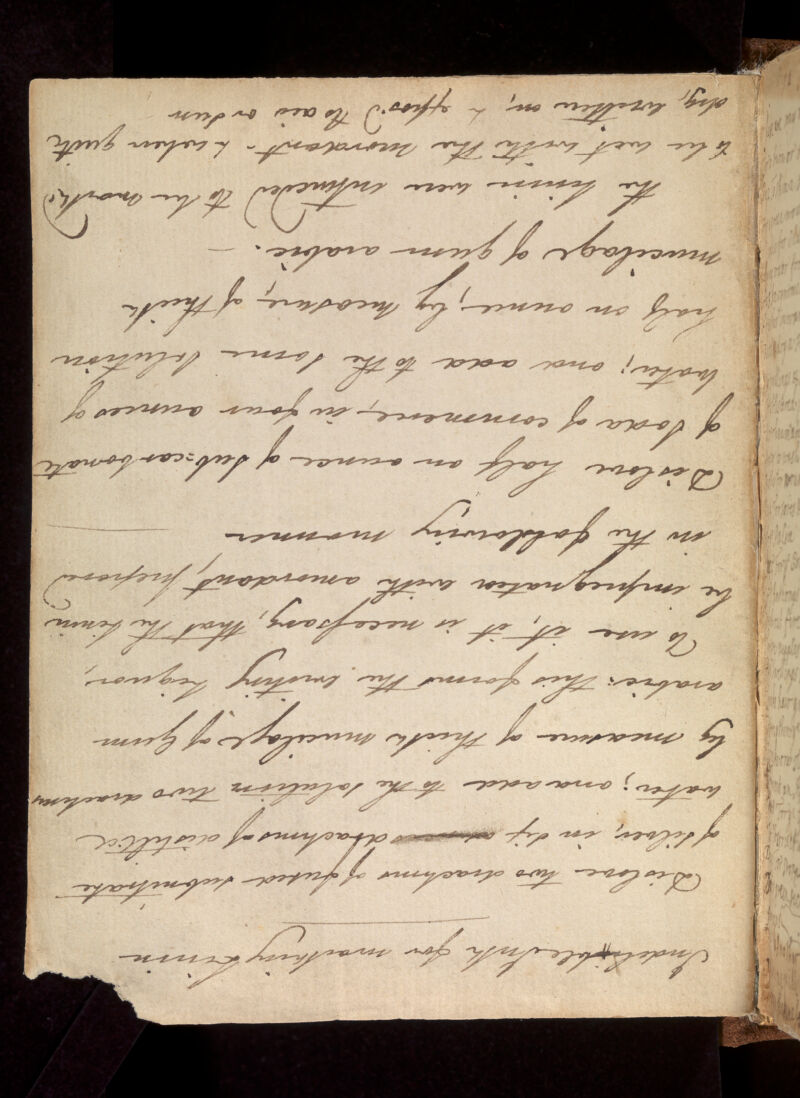 Indelible Ink for marking Linin
Disolve two drachms of fused subnitrate
of silver, in six drachms of distilled
water; and add to the solution two drachms
by measure of thick mucilage of Gum
arabic: this forms the writing Liquor,
To use it, it is necessary, that the Linin
be impregnated with amordant, prepared
in the following manner
Disolve half an ounce of sub=carbonate
of soda of commerce, in four ounces of
water; and add to the same solution
half an ounce, by measure, of thick
mucilage of gum arabic. —
the linin were intended to be marked
to be wet with the mordant - & when quite
dry, written on, & expos'd to air or sun